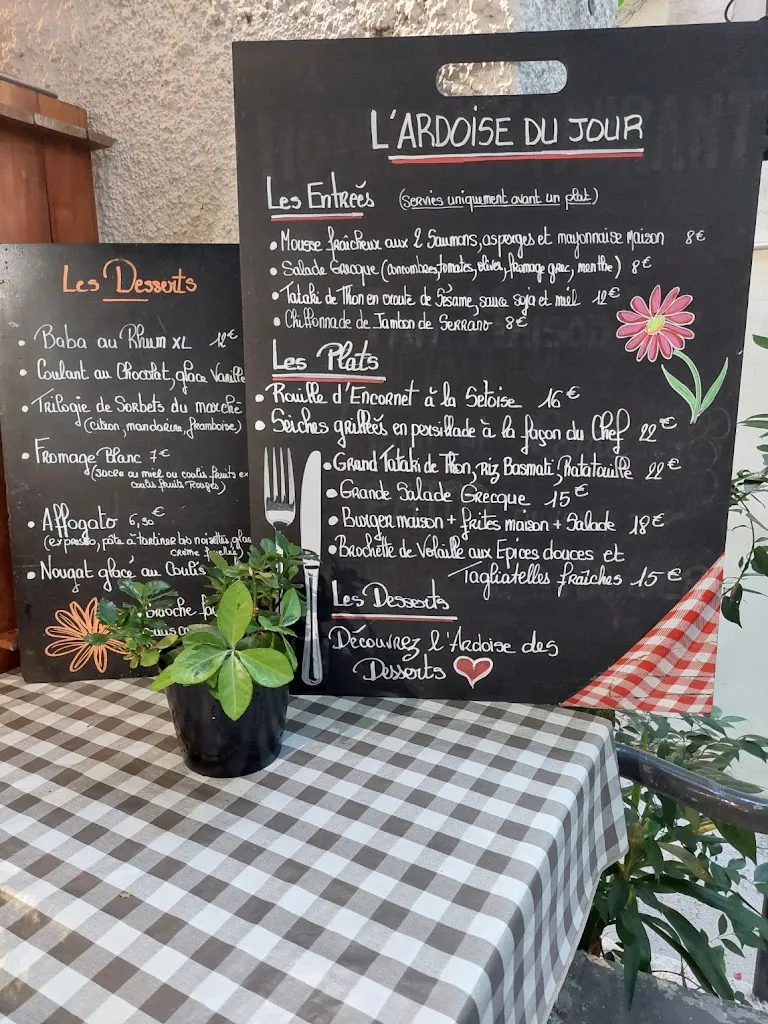 L'ARDOISE DU JOUR
Les Entreés (servies uniquement avant un plat)
• Mousse fraîcheur aux 2 Saumons, asperges et mayonnaise maison 8€
• Salade Grecque (concombres, tomates, olives, fromage grec, menthe) 8€
• Tataki de Thon en croute de Sésame, sauce soja et miel 12€
• Chiffonnade de Jambon de Serrano 8€
Les Plats
• Rouille d'Encornet à la Sétoise 16€
• Seiches grillées en persillade à la façon du Chef 22€
• Grand Tataki de Thon, riz Basmati, Ratatouille 22€
• Grande Salade Grecque 15€
• Burger maison + frites maison + Salade 18€
• Brochette de Volaille aux Epices douces et
Tagliatelles fraîches 15€
Les Desserts
Découvrez l'Ardoise des
Desserts
Les Desserts
• Baba au Rhum XL 12€
• Coulant au Chocolat, glace Vanille
• Trilogie de Sorbets du marché
(citron, mandarine, framboise)
• Fromage Blanc 7€
(sucre ou miel ou coulis fruits
coulis fruits Rouges)
• Affogato 6,50€
(expresso, pâte à tartiner bio noisettes,
crème
• Nougat glacé au Coulis
Brioche